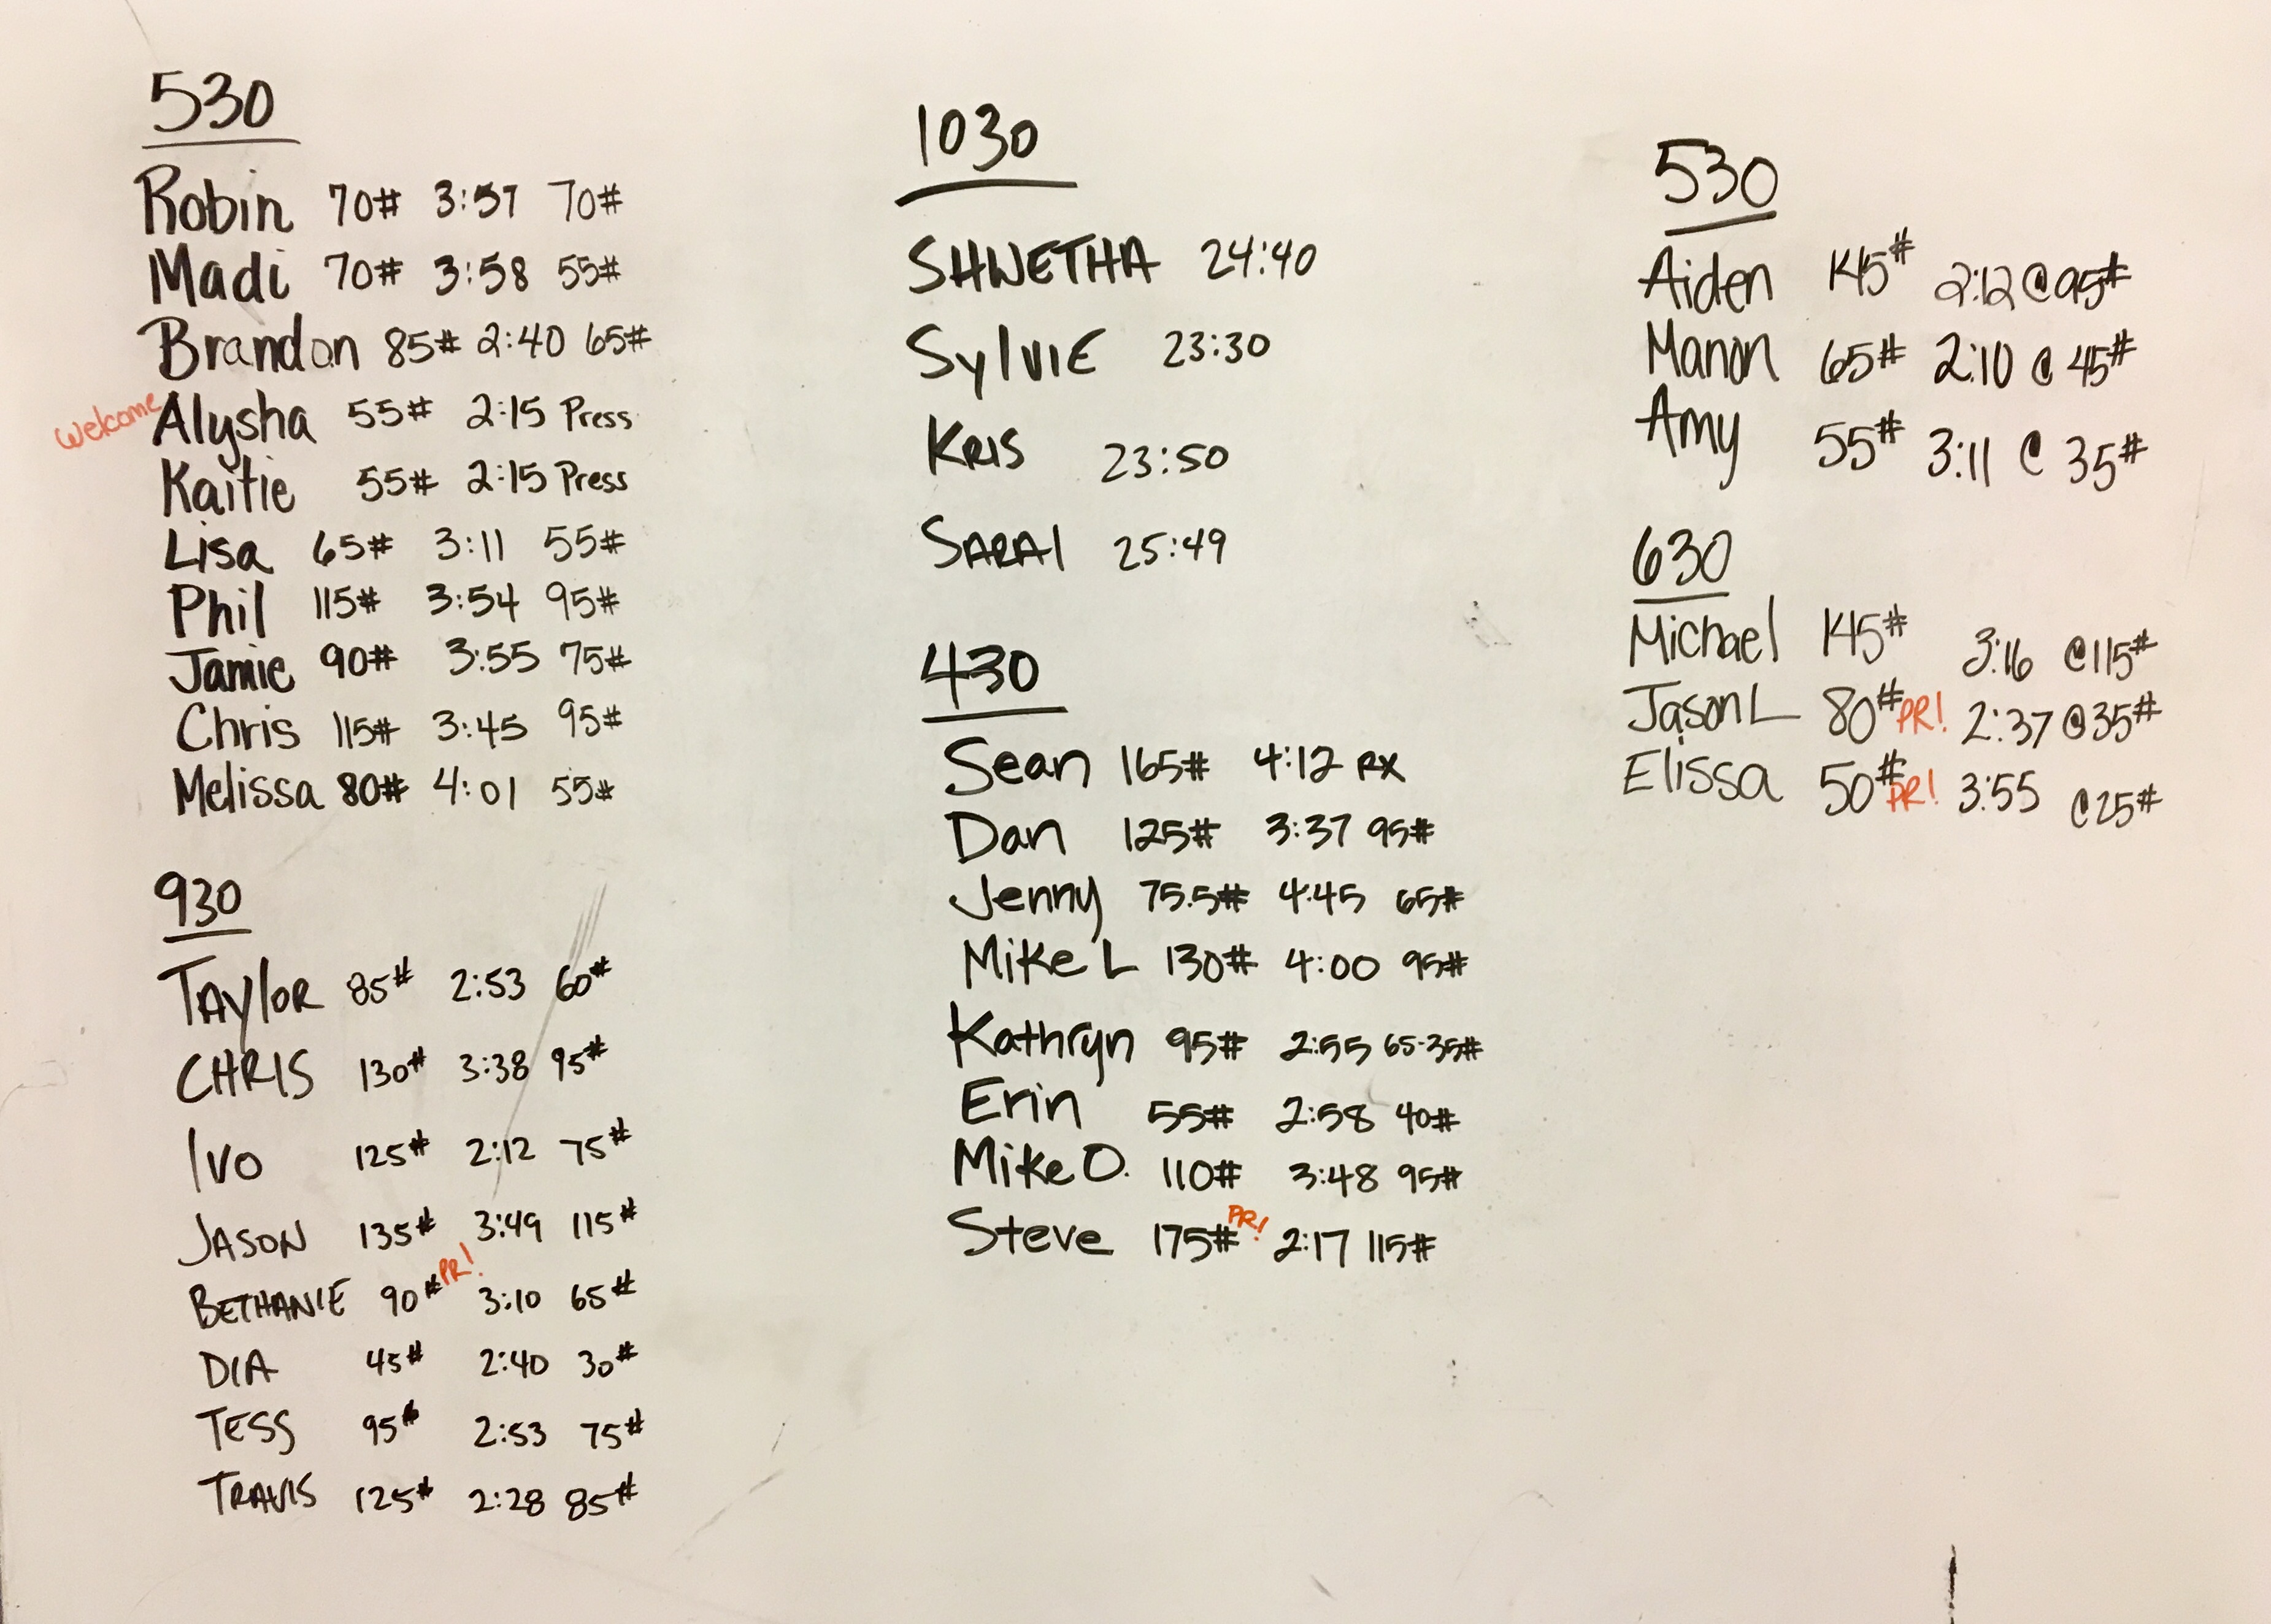 530
Robin 70# 3:57 70#
Madi 70# 3:58 55#
Brandon 85# 2:40 65#
welcome Alysha 55# 2:15 Press
Kaitie 55# 2:15 Press
Lisa 65# 3:11 55#
Phil 115# 3:54 95#
Jamie 90# 3:55 75#
Chris 115# 3:45 95#
Melissa 80# 4:01 55#
930
TAylOR 85# 2:53 60#
CHRIS 130# 3:38 95#
IVO 125# 2:12 75#
JASON 135# 3:49 115#
BETHANIE 90# PR! 3:10 65#
DIA 45# 2:40 30#
TESS 95# 2:53 75#
TRAVIS 125# 2:28 85#
1030
SHWETHA 24:40
SylviE 23:30
KRIS 23:50
SARAI 25:49
430
Sean 165# 4:12 RX
Dan 125# 3:37 95#
Jenny 75.5# 4:45 65#
Mike L 130# 4:00 95#
Kathryn 95# 2:55 65-35#
Erin 55# 2:58 40#
Mike O. 110# 3:48 95#
Steve 175# PR! 2:17 115#
530
Aiden 145# 2:12 @95#
Manon 65# 2:10 @ 45#
Amy 55# 3:11 @ 35#
630
Michael 145# 3:16 @115#
Jason L 80# PR! 2:37 @35#
Elissa 50# PR! 3:55 @25#